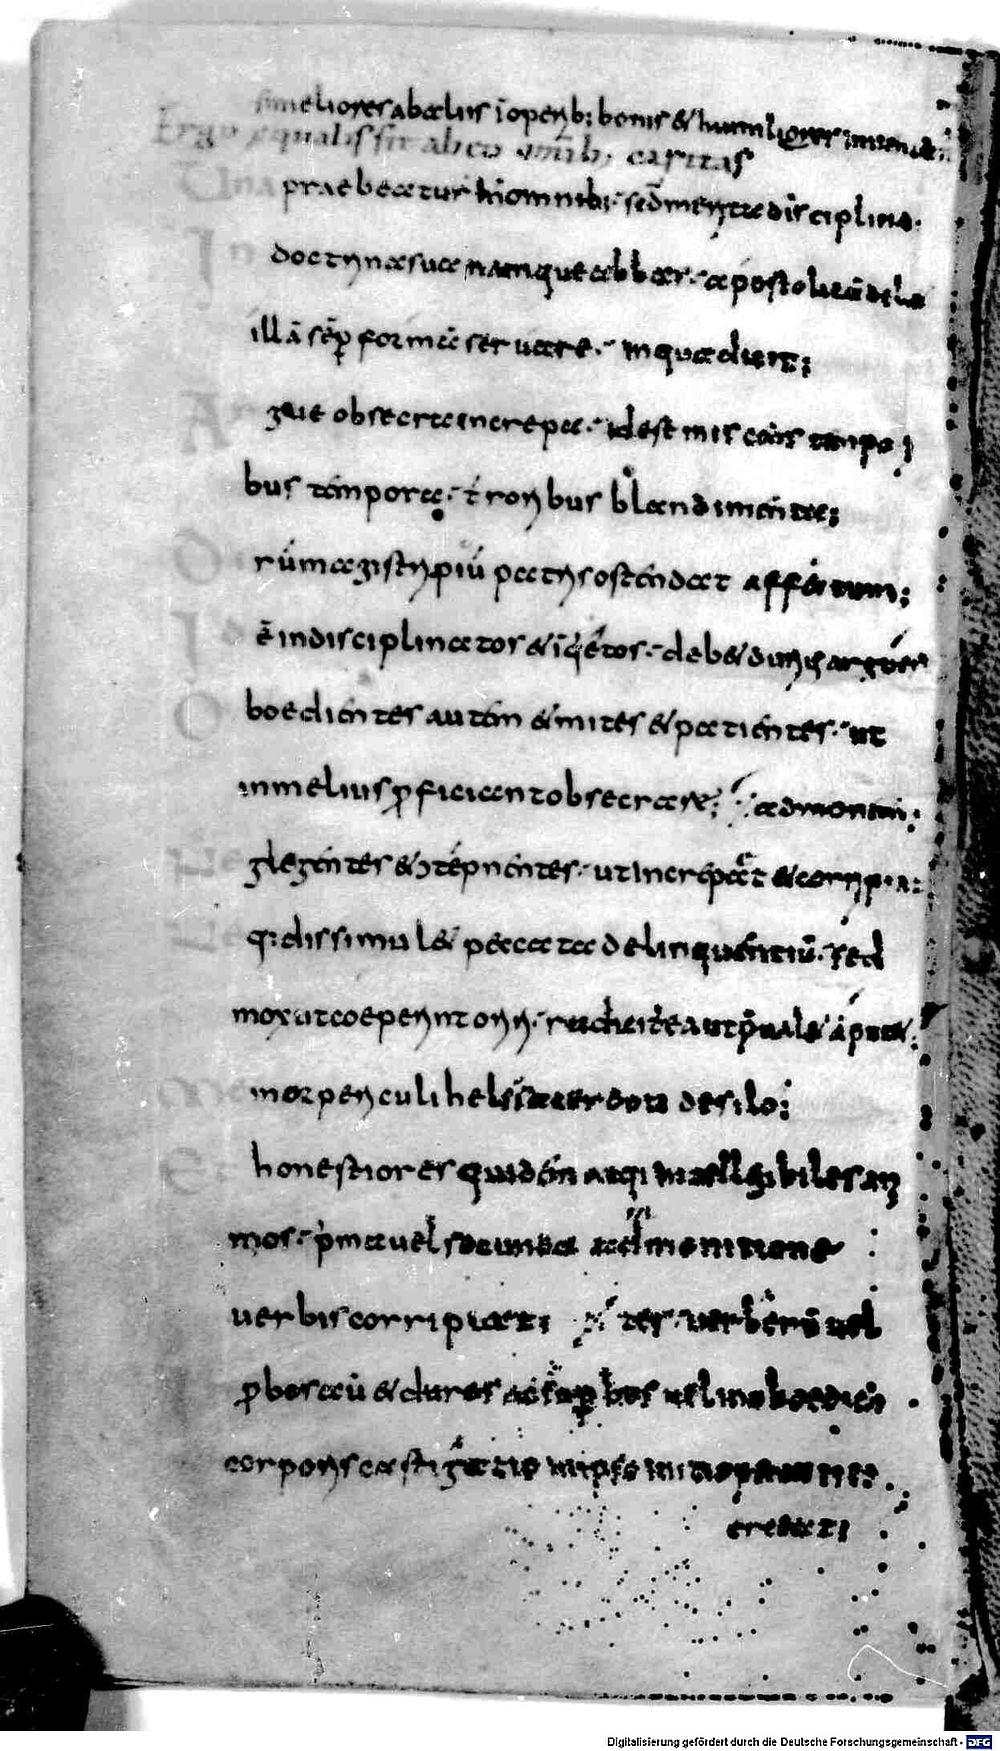 si meliores ab aliis ī operib; bonis & humiliores inueniam̄
Ergo equalis sit ab eo om̄ib; caritas
Una praebeatur in omnibus sed̄m merita disciplina.
In doctrina sua namque abbas apostolicū debe
illā sēp formā seruare. in qua dicit;
Argue obsecra increpa. idest miscens tempori
bus tempora. t̄roribus blandimenta;
Dirum magistri piū patris ostendat affectum;
Id ē indisciplinatos & inq̄etos. deb& durius arguere
Oboedientes autem & mites & patientes. ut
in melius p̄ficiant obsecrare; admonem;
Neglegentes & ɔtēpnentes. ut increpat & corripiat
Neq: dissimul& peccata delinquentiū. sed
mox ut coeperint oriri. radicit̄ ea ut p̄ual& āput&
Memor periculi heli sacerdotis de silo;
Et honestiores quidem atq; intellegibiles ani
mos. p̄ma uel secunda admonitione
uerbis corripiat; uerberū uel
īp̄bos aū & duros ac sup̄bos uel inoboedien
corporis castigatio in ipso initio peccati
coerceat;
Digitalisierung gefördert durch die Deutsche Forschungsgemeinschaft - DFG